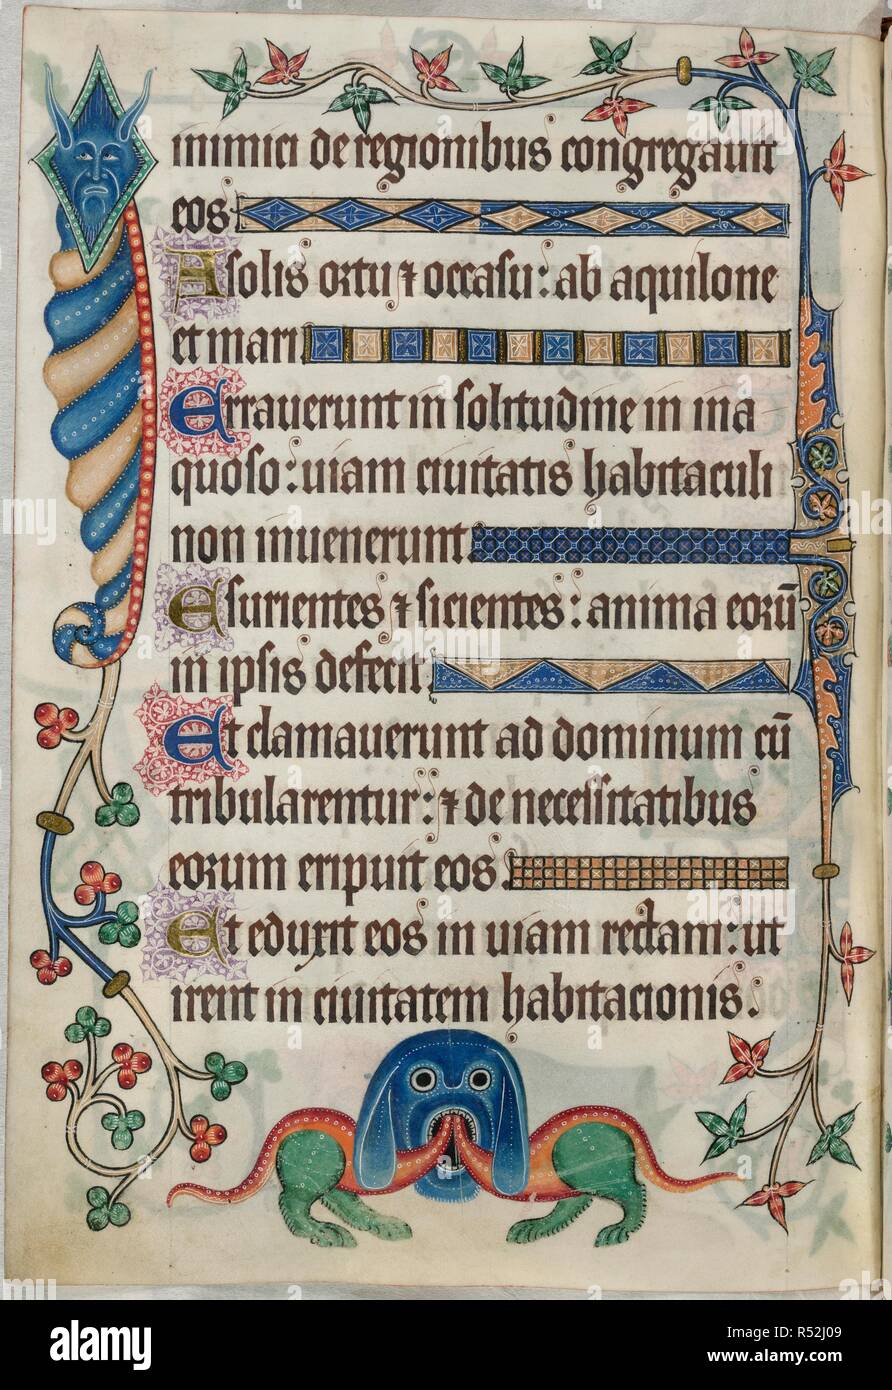 inimici de regionibus congregauit
eos.
A solis ortu ⁊ occasu: ab aquilone
et mari.
Errauerunt in solitudine in ina
quoso: uiam ciuitatis habitaculi
non inuenerunt.
Esurientes ⁊ sicientes: anima eorū
in ipsis defecit.
Et clamauerunt ad dominum cū
tribularentur: ⁊ de necessitatibus
eorum eripuit eos.
Et eduxit eos in uiam rectam: ut
irent in ciuitatem habitacionis.
alamy
Image ID: R52J09
www.alamy.com